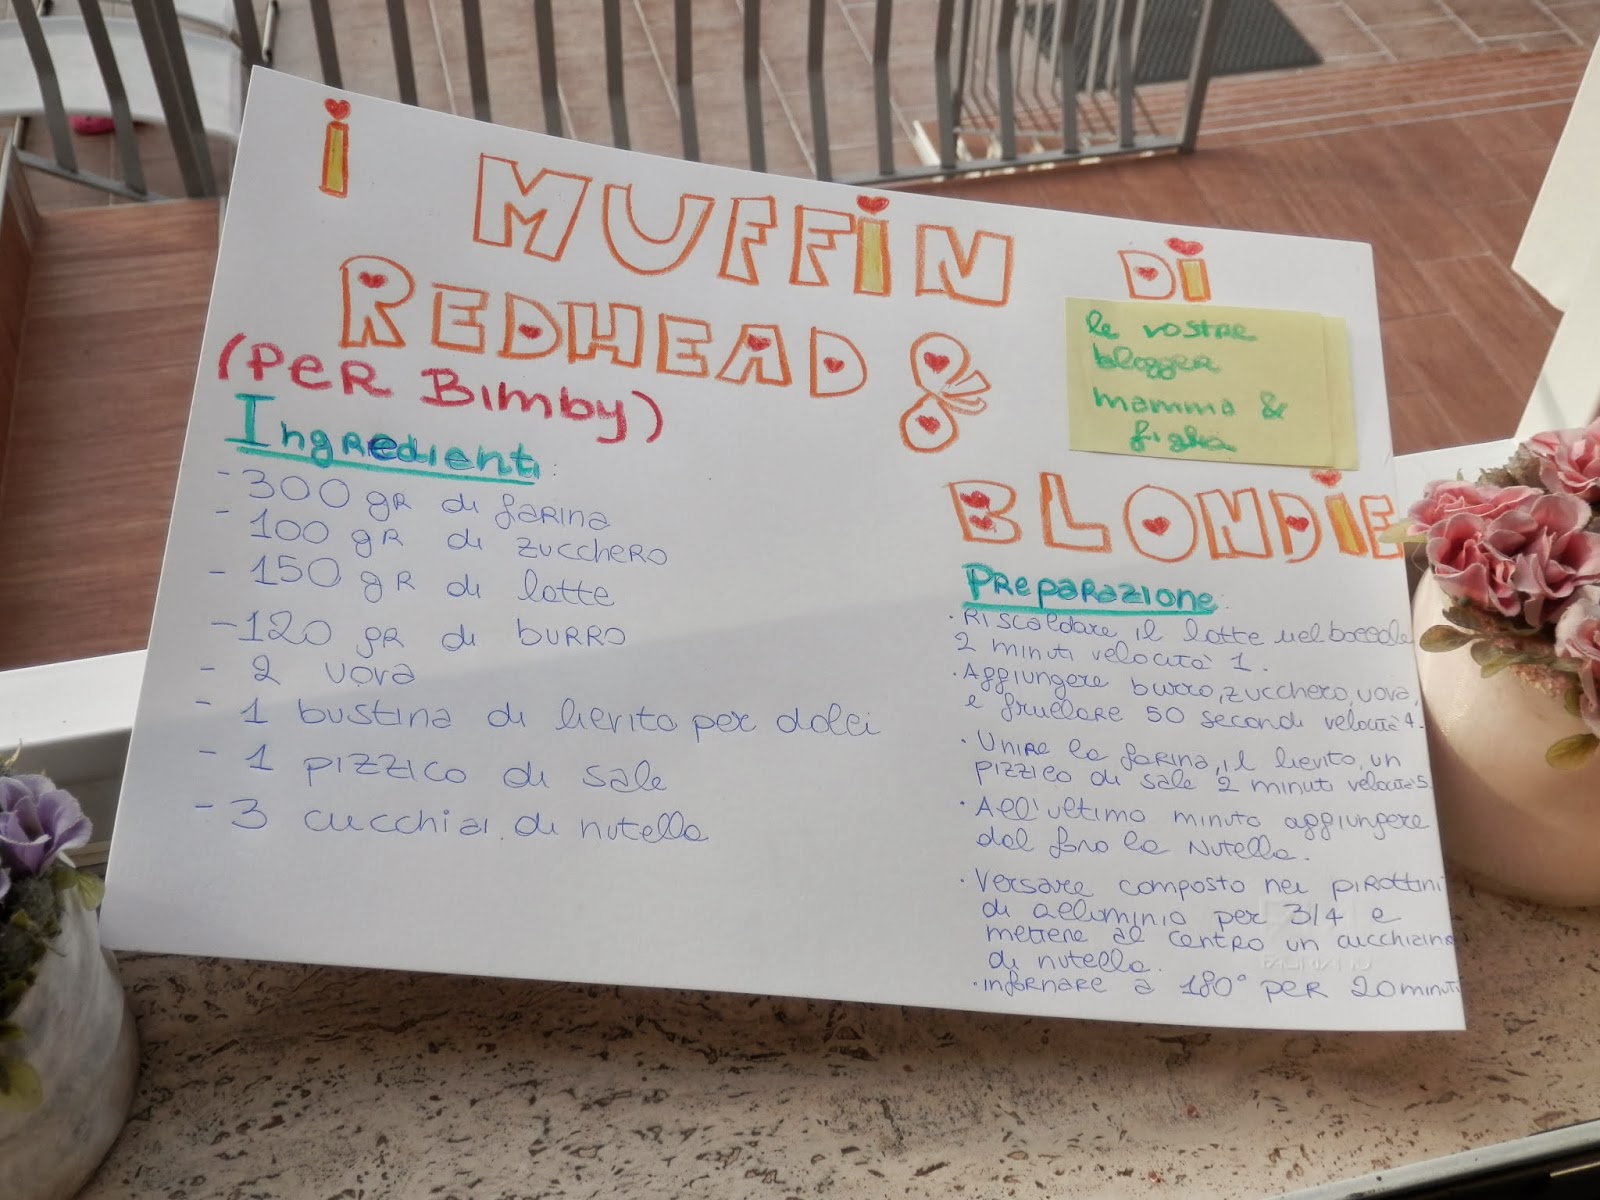 I MUFFIN DI
REDHEAD &
BLONDIE
le vostre
blogger
mamma &
figlia
(PER BIMBY)
Ingredienti:
- 300 gr di farina
- 100 gr di zucchero
- 150 gr di latte
- 120 gr di burro
- 2 uova
- 1 bustina di lievito per dolci
- 1 pizzico di sale
- 3 cucchiai di nutella
Preparazione:
· Riscaldare il latte nel boccale
2 minuti velocità 1.
· Aggiungere burro, zucchero, uova,
e frullare 50 secondi velocità 4.
· Unire la farina, il lievito, un
pizzico di sale 2 minuti velocità 5.
· All'ultimo minuto aggiungere
dal foro la Nutella.
· Versare composto nei pirottini
di alluminio per 3/4 e
mettere al centro un cucchiaino
di nutella.
· Infornare a 180° per 20 minuti
FABRIANO